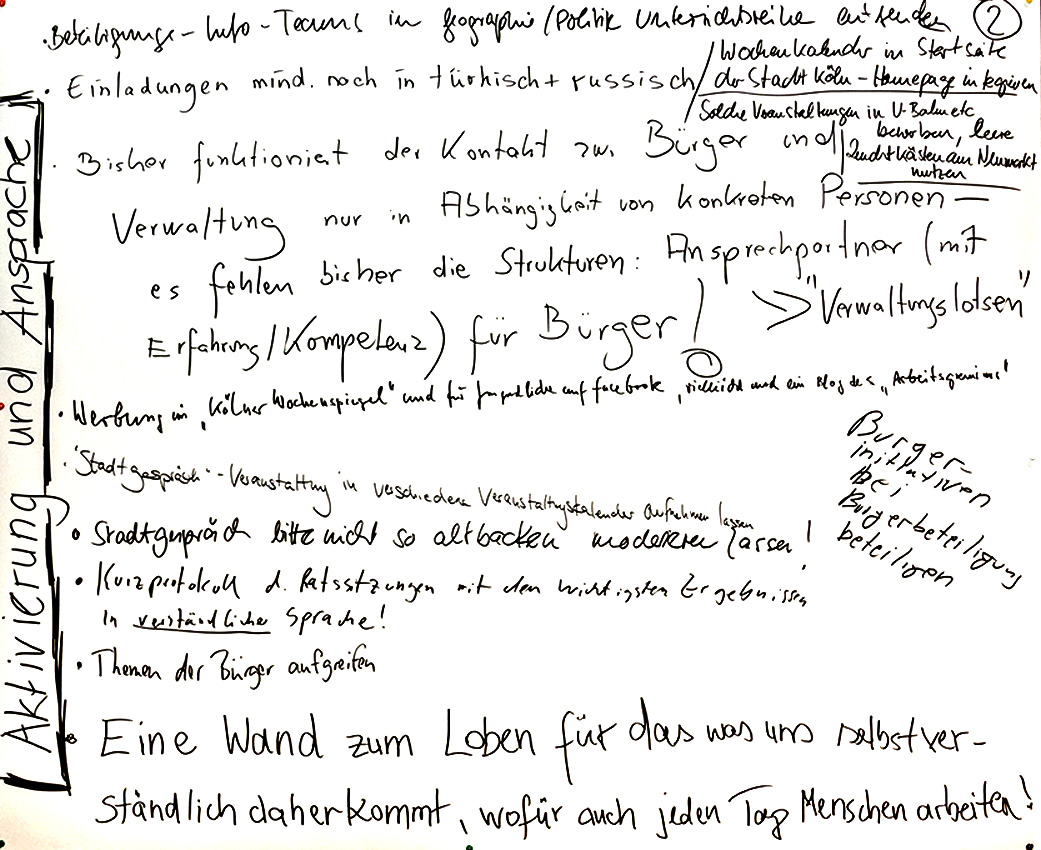 Aktivierung und Ansprache
2
· Beteiligungs-Info-Teams in Geographie/Politik Unterrichtsreihe entsenden
· Einladungen mind. noch in türkisch + russisch
Wochenkalender in Startseite
der Stadt Köln - Homepage integrieren
Solche Veranstaltungen in U-Bahn etc
bewerben, leere
Leuchtkästen am Neumarkt
nutzen
· Bisher funktioniert der Kontakt zw. Bürger und
Verwaltung nur in Abhängigkeit von konkreten Personen —
es fehlen bisher die Strukturen: Ansprechpartner (mit
Erfahrung/Kompetenz) für Bürger!
> "Verwaltungslotsen"
· Werbung im „Kölner Wochenspiegel" und für Jugendliche auf facebook, vielleicht auch ein Blog des „Arbeitsgremiums"
· "Stadtgespräch"-Veranstaltung in verschiedene Veranstaltungskalender aufnehmen lassen
• Stadtgespräch bitte nicht so altbacken moderieren lassen!
Bürger-
initiativen
bei
Bürgerbeteiligung
beteiligen
• Kurzprotokoll d. Ratssitzungen mit den wichtigsten Ergebnissen
in verständlicher Sprache!
• Themen der Bürger aufgreifen
• Eine Wand zum Loben für das was uns selbstver-
ständlich daherkommt, wofür auch jeden Tag Menschen arbeiten!